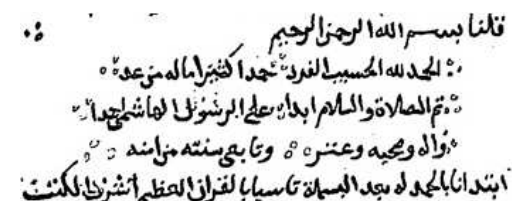 قلنا بسم الله الرحمن الرحيم
الحمد لله الحسيب الفرد حمدا كثيرا ماله من عد
ثم الصلاة والسلام ابدا على الرسول الهاشمي احمدا
واله وصحبه وعترته وتابعي سنته من امته
ابتدانا بالحمد له بعد البسملة تاسيا بالقران العظيم